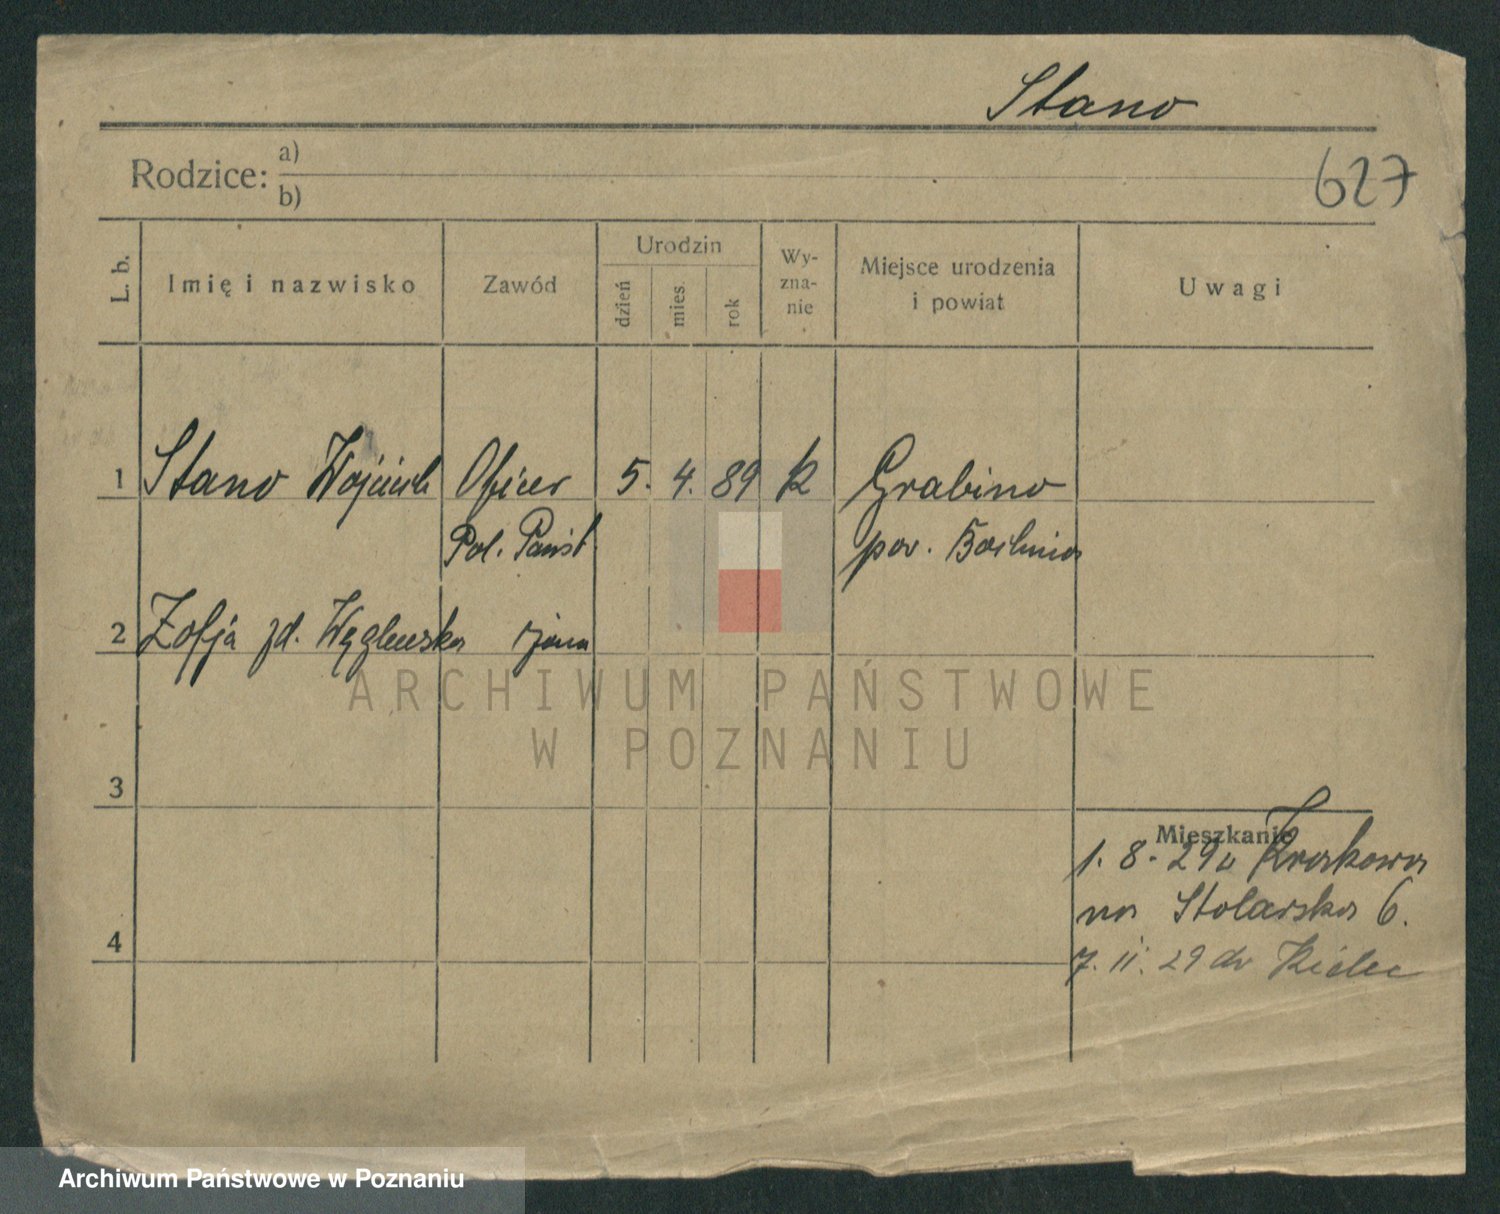 Stano
Rodzice: a)
b)
627
L. b.
Imię i nazwisko
Zawód
Urodzin
dzień
mies.
rok
Wy-
zna-
nie
Miejsce urodzenia
i powiat
Uwagi
1 Stano Wojciech Oficer 5. 4. 89 k Grabino
Pol. Państ. pow. Bochnia
2 Zofja zd. Węglewska żona
3
Mieszkanie
1. 8. 29 z Krakowa
na Stolarska 6.
4
7. 11. 29 do Kielc
ARCHIWUM PAŃSTWOWE
W POZNANIU
Archiwum Państwowe w Poznaniu